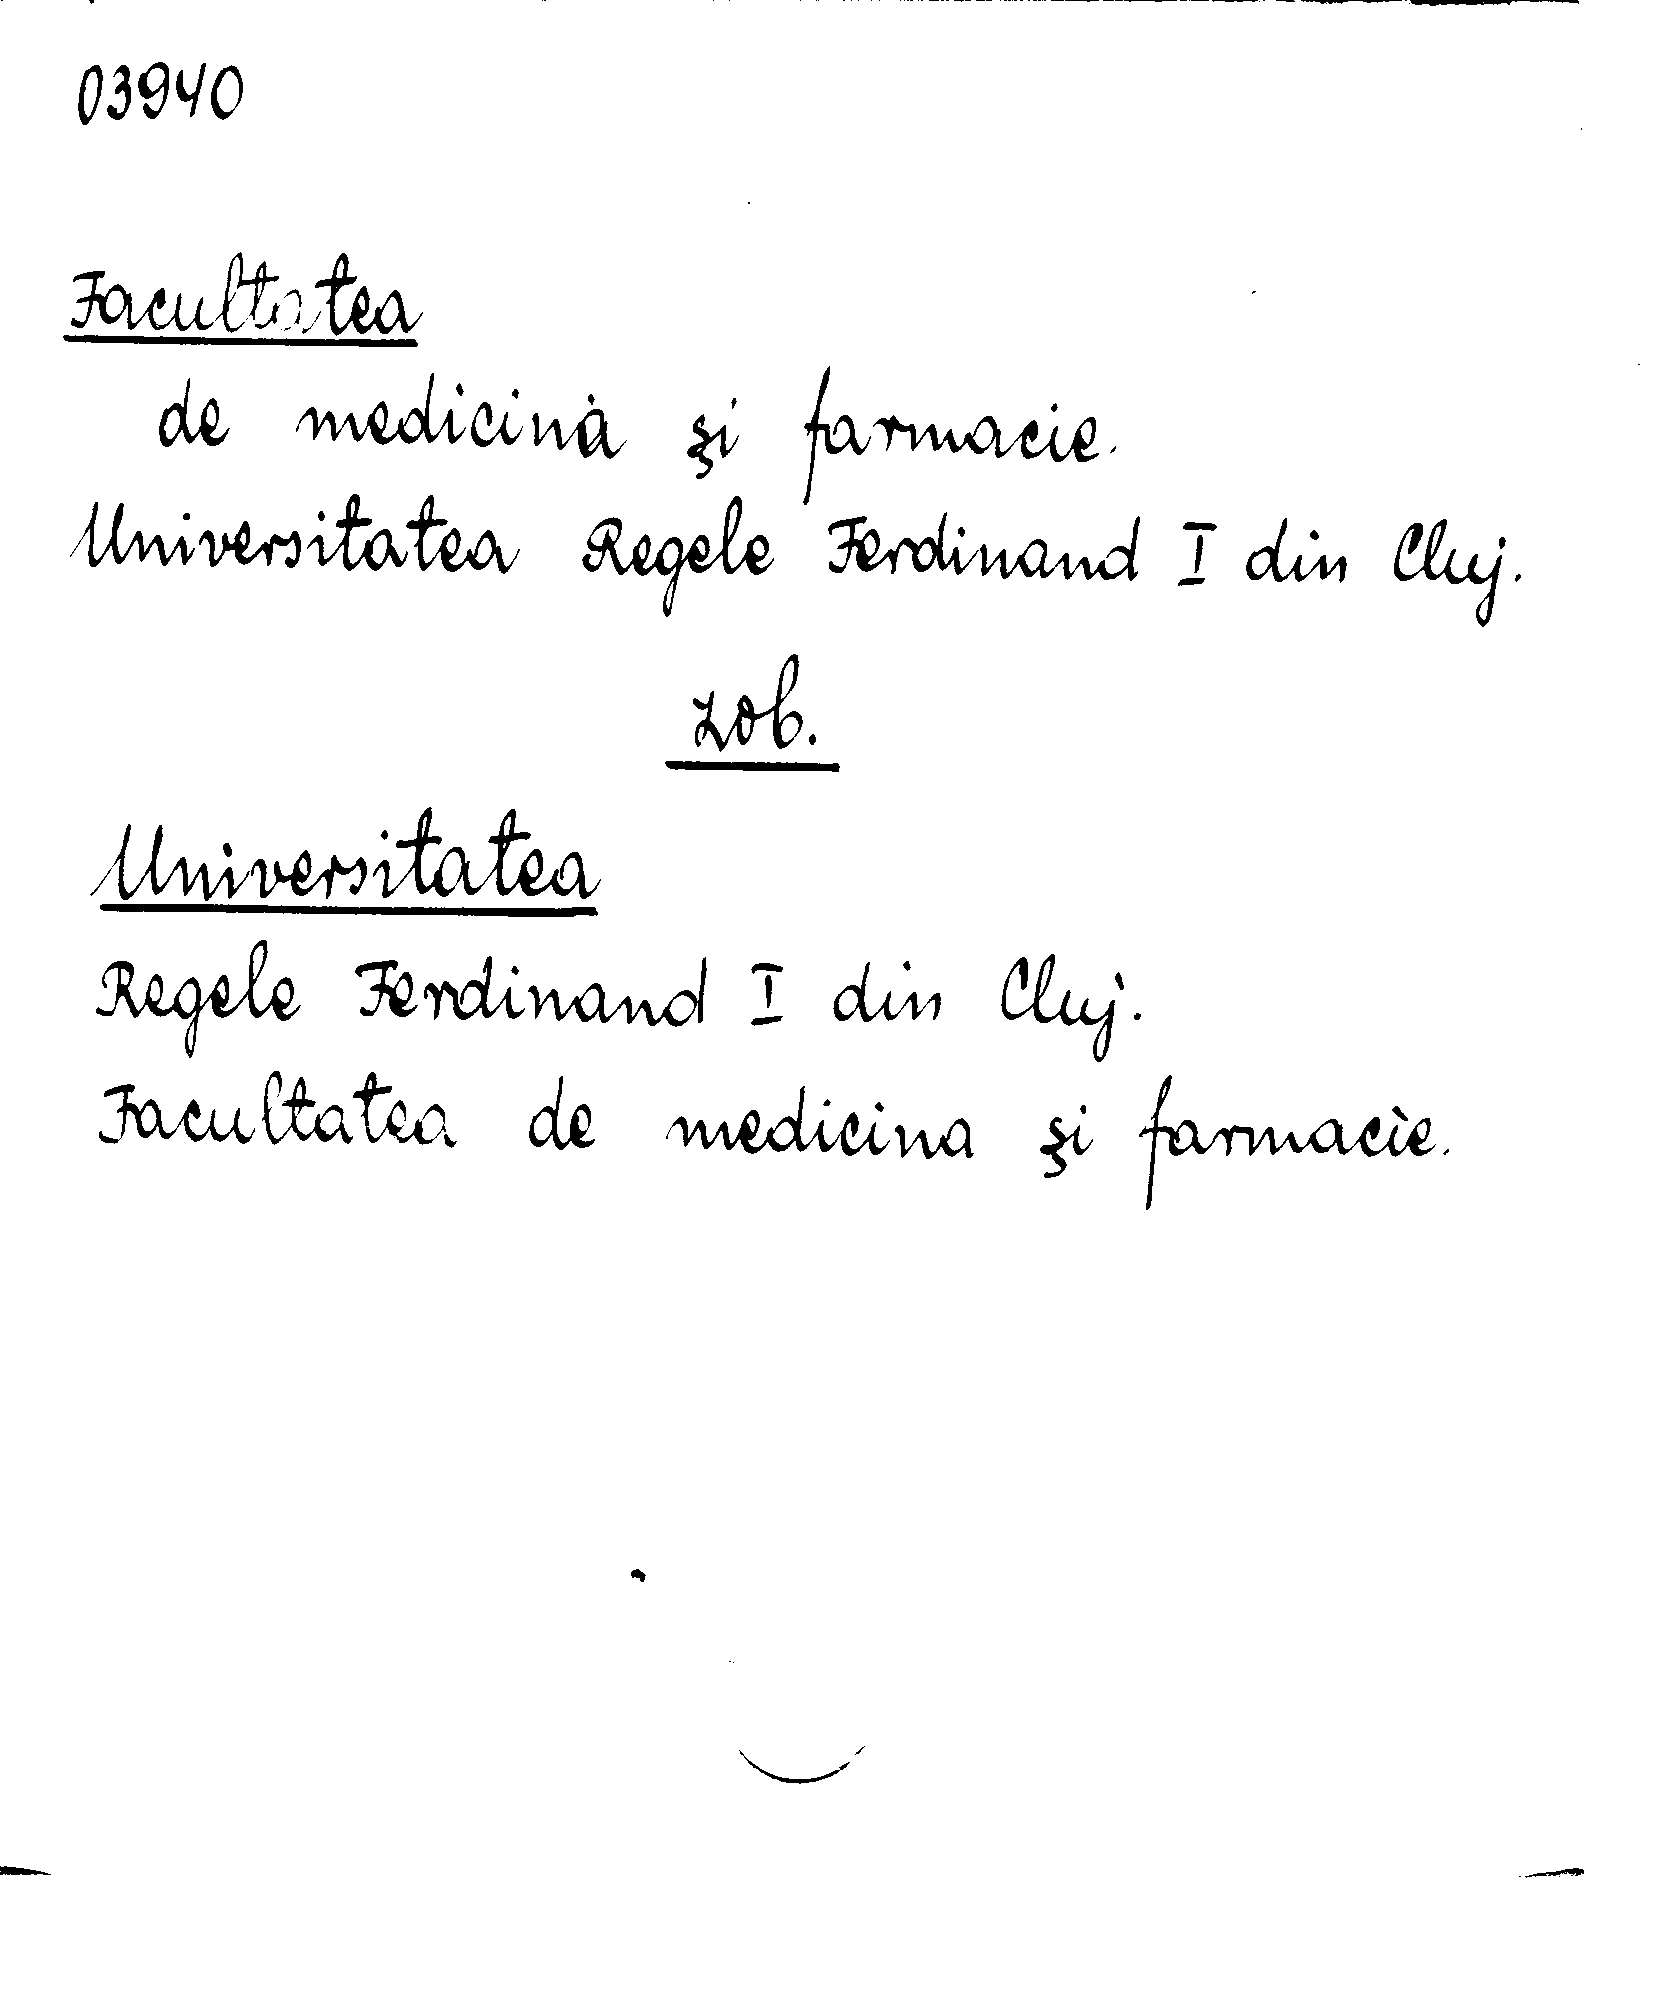 03940
Facultatea
de medicină şi farmacie.
Universitatea Regele Ferdinand I din Cluj.
zob.
Universitatea
Regele Ferdinand I din Cluj.
Facultatea de medicina şi farmacie.